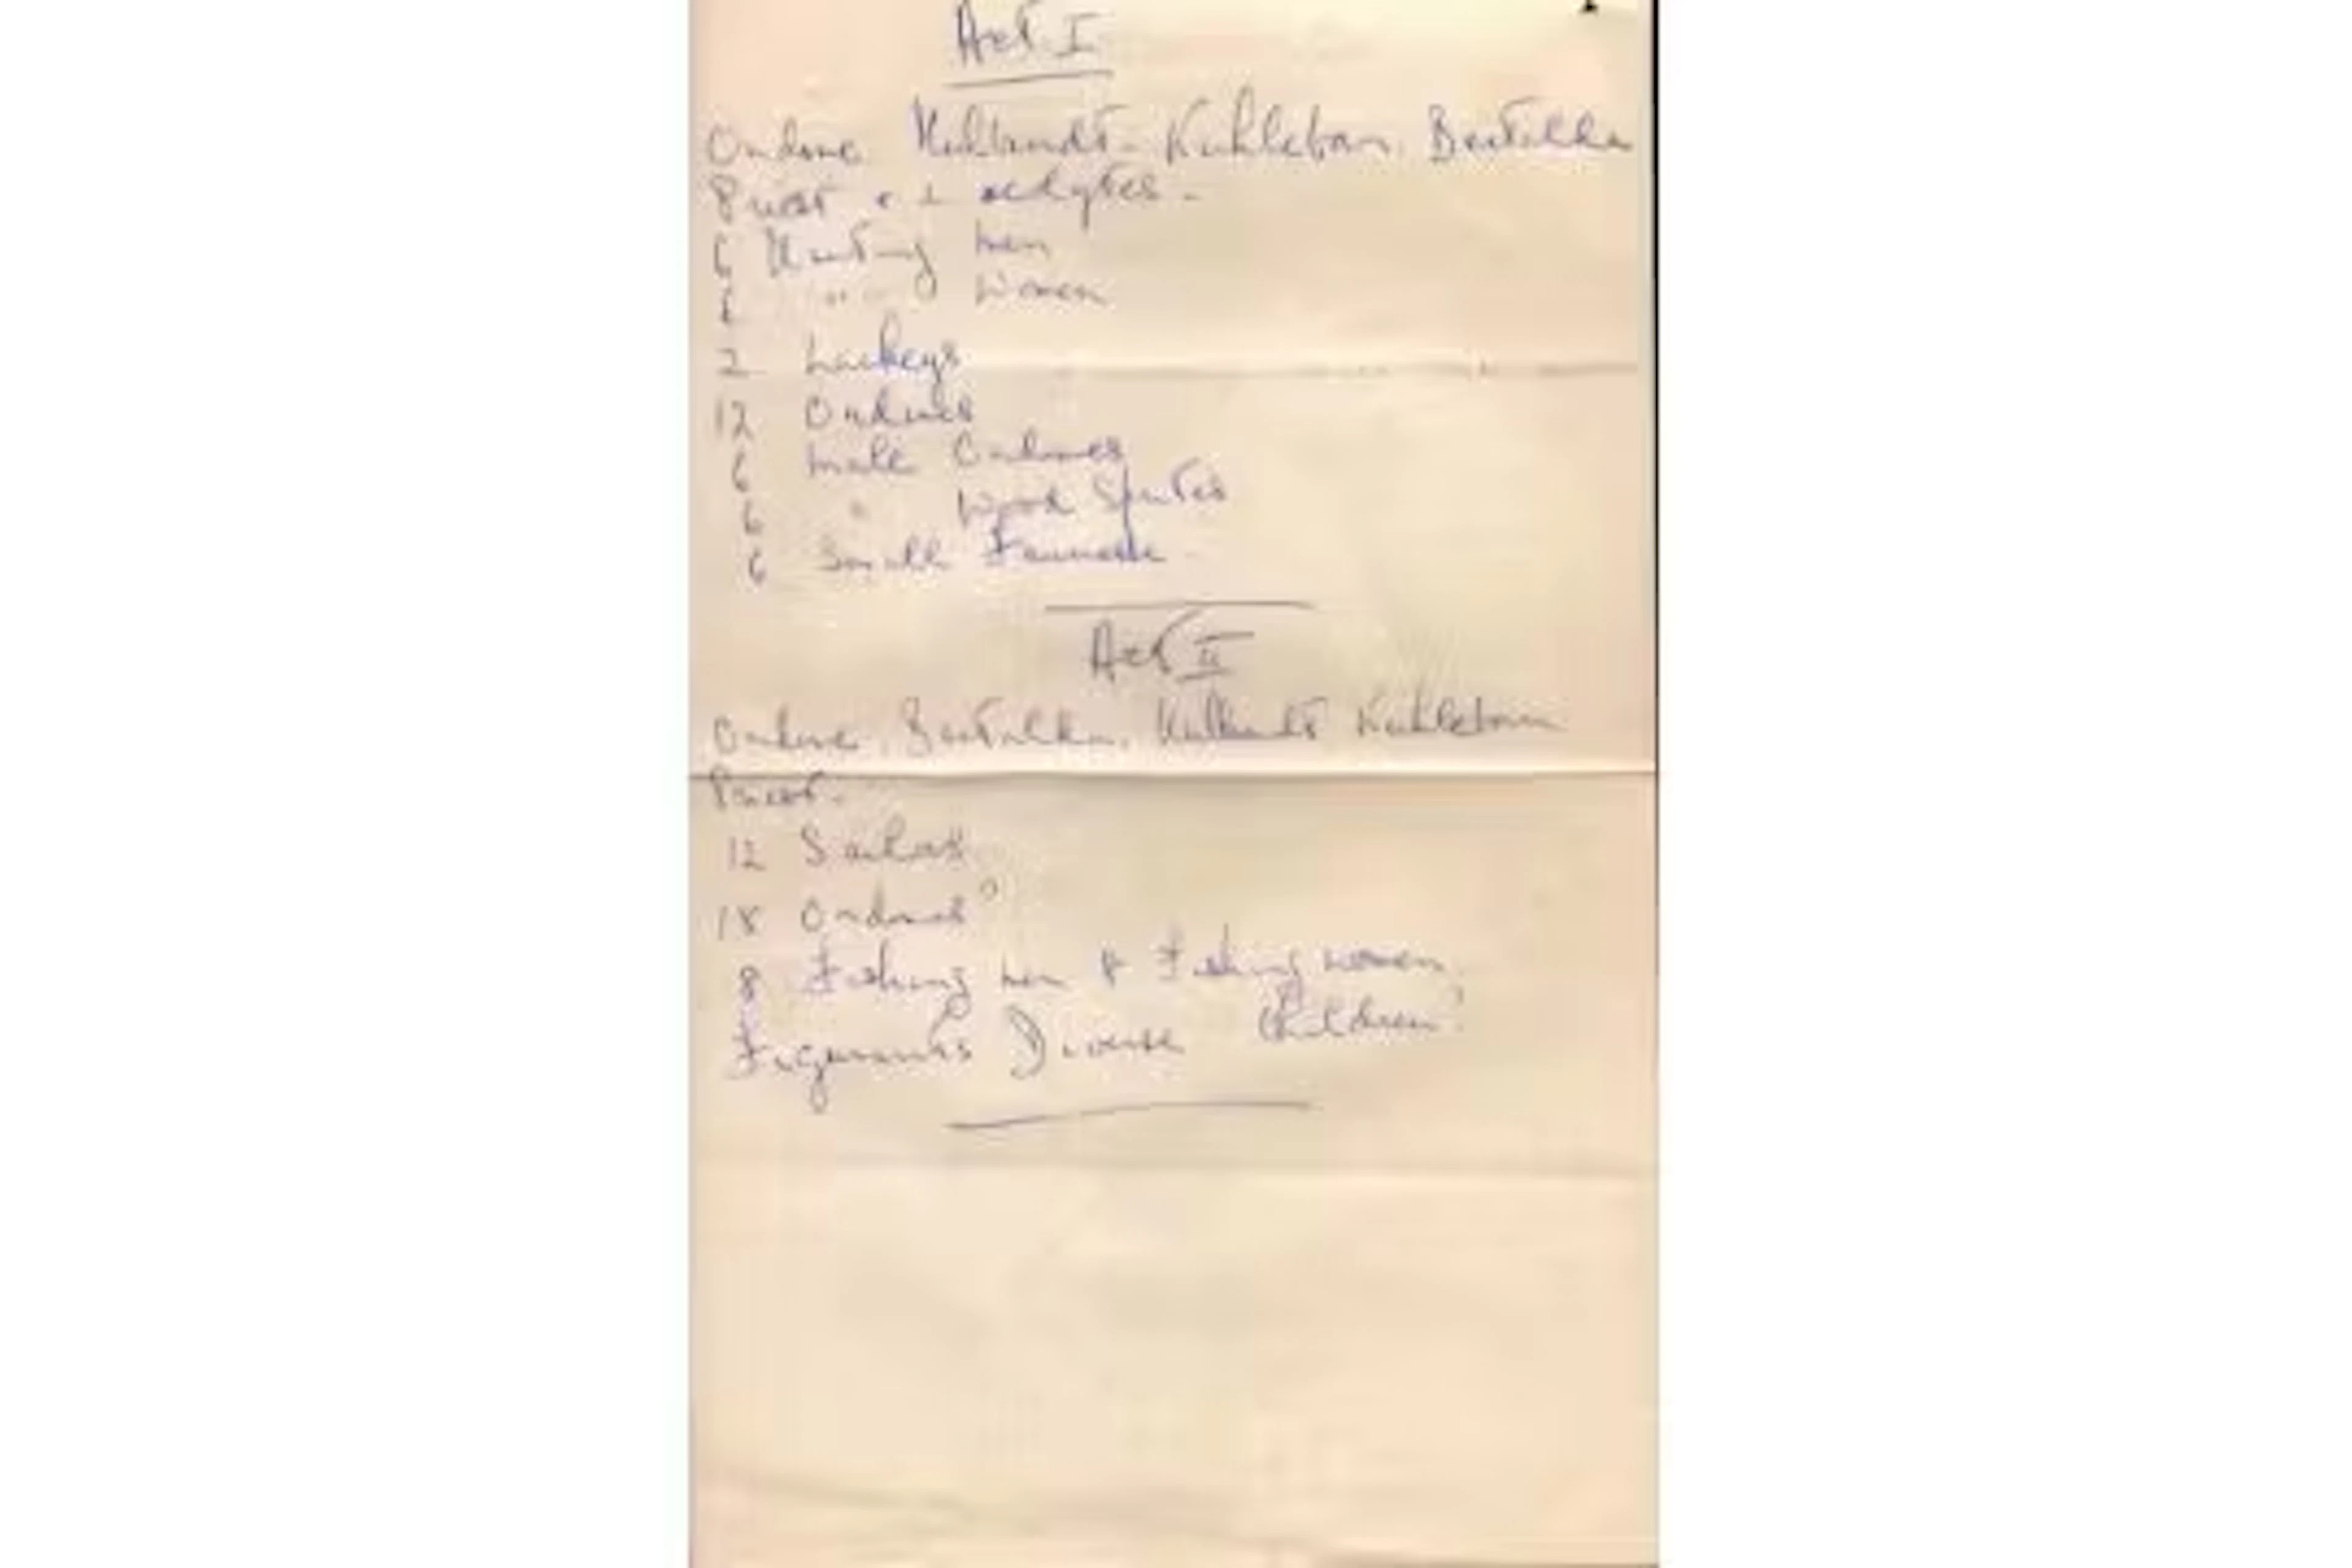 Act I
Ondine Hulbrandt - Kuhleborn. Bertalda
Priest + 2 acolytes -
6 Hunting men
6 " " women
2 Lackeys
12 Ondines
6 male Ondines
6 " Wood Sprites
6 Small
Act II
Ondine. Bertalda. Hulbrandt Kuhleborn
Priest.
12 Sailors
18 Ondines
8 Fishing men & Fishing women
Figurants Diverse Children?